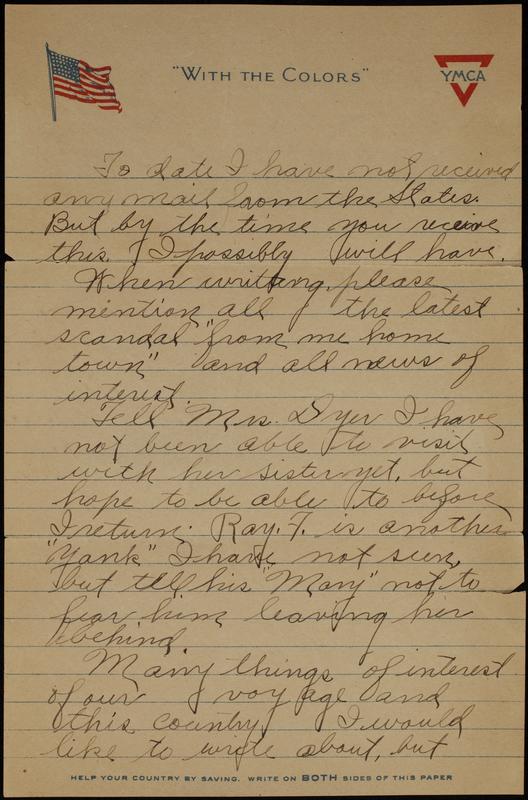 "WITH THE COLORS"
YMCA
To date I have not received
any mail from the States.
But by the time you receive
this. I possibly will have.
When writting please
mention all the latest
scandal "from me home
town" and all news of
interest.
Tell Mrs. Dyer I have
not been able to visit
with her sister yet, but
hope to be able to before
I return. Ray. F. is another
"Yank" I have not seen,
but tell his "Mary" not to
fear him leaving her
behind.
Many things of interest
of our voyage and
this country I would
like to write about, but
HELP YOUR COUNTRY BY SAVING. WRITE ON BOTH SIDES OF THIS PAPER